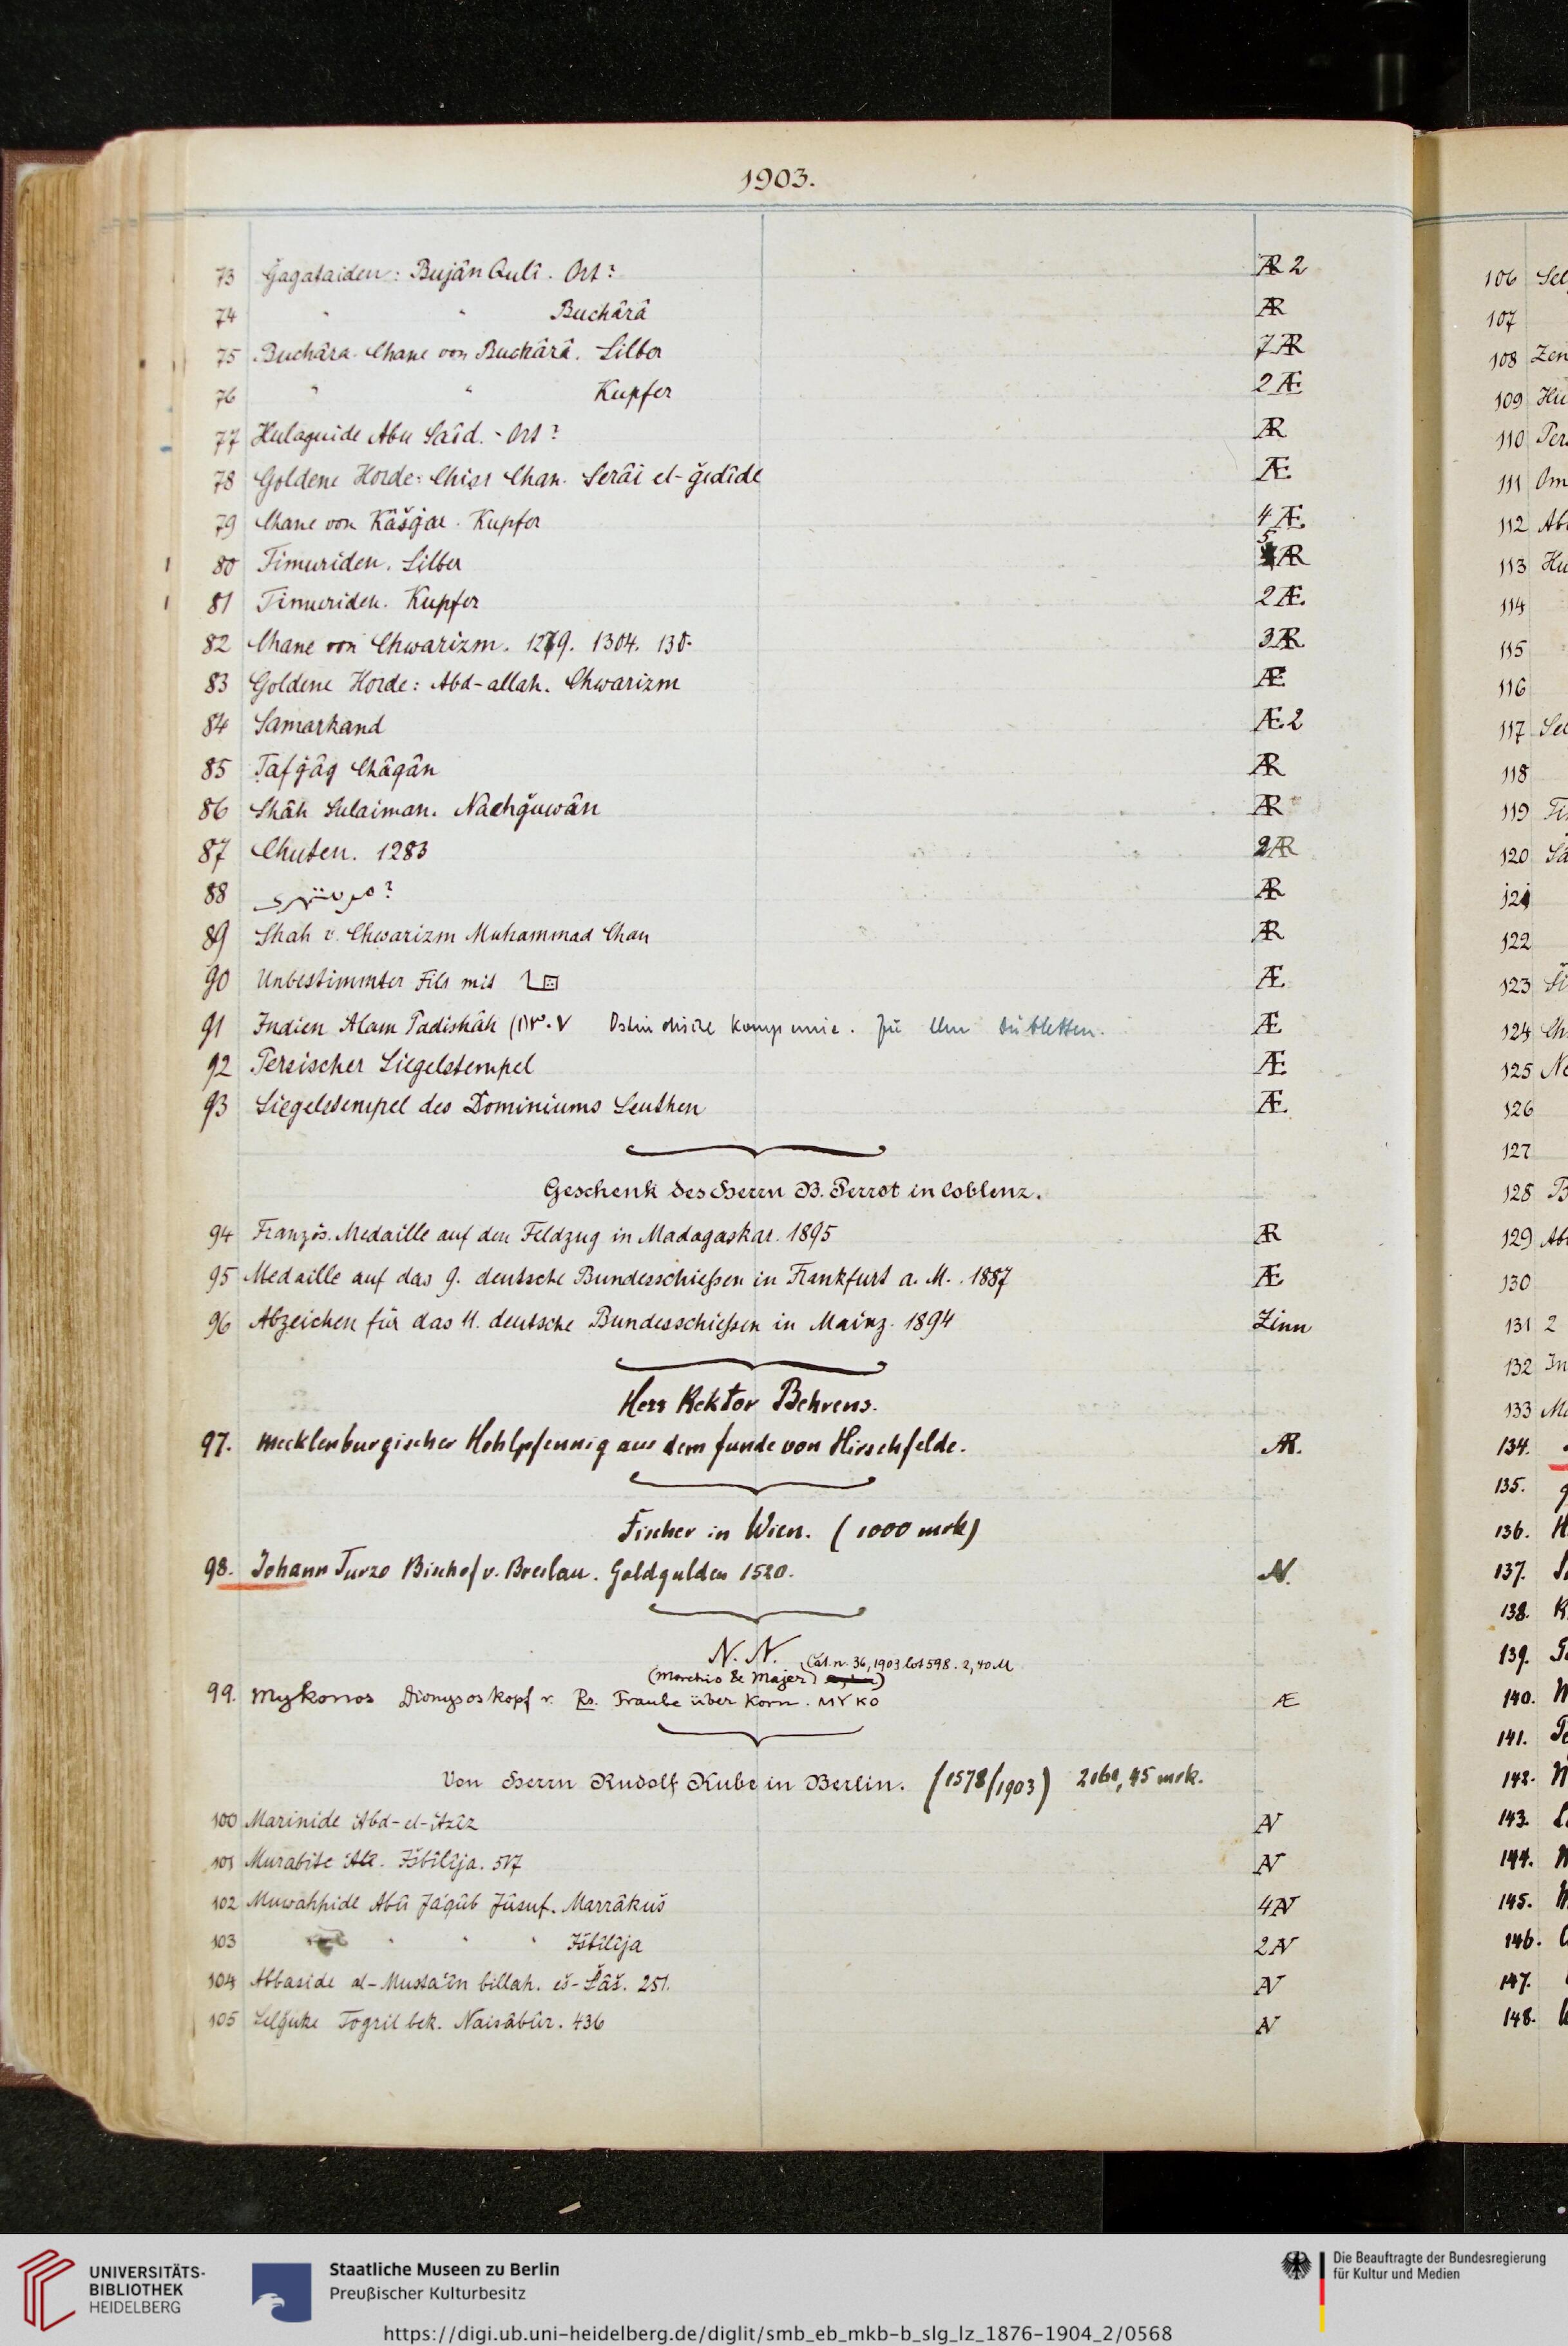 1903.
73 Ǧagataiden: Bujân Quli. Ort? AR 2
74 " " Buchârâ AR
75 Buchâra. Chane von Buchârâ. Silber 7 AR
76 " " Kupfer 2 Æ
77 Hulaguide Abu Saîd. - Ort? AR
78 Goldene Horde: Chisr Chan. Serâi el-ǧedîde Æ
79 Chane von Kâšġar. Kupfer 4 Æ
80 Timuriden. Silber 5 AR
81 Timuriden. Kupfer 2 Æ.
82 Chane von Chwarizm. 1279. 1304. 130. 3 AR.
83 Goldene Horde: Abd-allah. Chwarizm Æ
84 Samarkand Æ. 2
85 Ṭafġâǵ Châqân AR
86 Shâh Sulaiman. Nachǧuwân AR
87 Chuten. 1283 2 AR
88 ? AR
89 Shah v. Chwarizm Muhammad Chan AR
90 Unbestimmter Fils mit Æ
91 Indien Alam Padishâh (١)٢٠٧ Ostindische Kompanie. Zu den Dubletten. Æ
92 Persischer Siegelstempel Æ
93 Siegelstempel des Dominiums Leuthen Æ
Geschenk des Herrn B. Perrot in Coblenz.
94 Französ. Medaille auf den Feldzug in Madagaskar. 1895 AR
95 Medaille auf das 9. deutsche Bundesschießen in Frankfurt a. M. 1887 Æ
96 Abzeichen für das 11. deutsche Bundesschießen in Mainz. 1894 Zinn
Herr Rektor Behrens.
97. Mecklenburgischer Hohlpfennig aus dem Funde von Hirschfelde. AR.
Fischer in Wien. (1000 mrk)
98. Johann Turzo Bischof v. Breslau. Goldgulden 1520. N.
N. N.
(Merchio & Majer) Cat. n. 36, 1903 lot 598. 2,40 M
99. Mykonos Dionysoskopf r. Rs. Traube über Korn. MYKO Æ
Von Herrn Rudolf Kube in Berlin. (1578/1903) 2160,45 mrk.
100 Marinide Abd-el-Azîz AV
101 Murabite Ali. Išbîlîja. 517 AV
102 Muwahhide Abû Jaʿqûb Jûsuf. Marrâkuš 4 AV
103 " " " Išbîlîja 2 AV
104 Abbaside al-Mustaʿîn billah. eš-Šâš. 251. AV
105 Selǧuke Togril bek. Naisâbûr. 436 AV
106
107
108
109
110
111
112
113
114
115
116
117
118
119
120
121
122
123
124
125
126
127
128
129
130
131 2
132
133
134.
135.
136.
137.
138.
139.
140.
141.
142.
143.
144.
145.
146.
147.
148.
UNIVERSITÄTS-
BIBLIOTHEK
HEIDELBERG
Staatliche Museen zu Berlin
Preußischer Kulturbesitz
Die Beauftragte der Bundesregierung
für Kultur und Medien
https://digi.ub.uni-heidelberg.de/diglit/smb_eb_mkb-b_slg_lz_1876-1904_2/0568